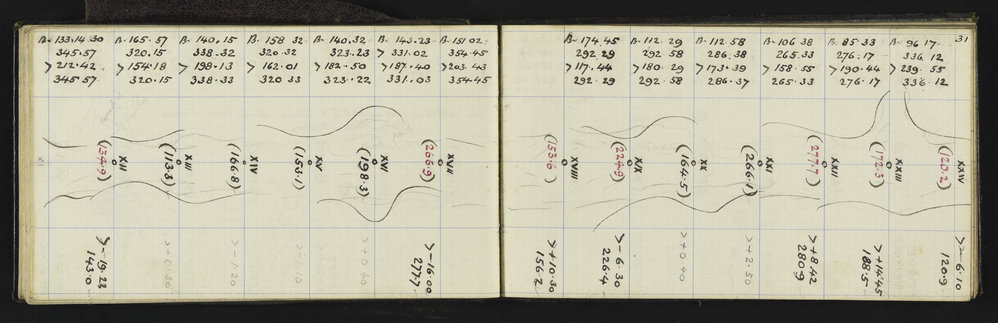 31
B-133.14.30 B-165.57 B-140.15 B-158 32 B-140.32 B-143.23 B-151 02
345.57 320.15 338.32 320 32 323.23 >331.02 354.45
>212.42 >154.18 >198.13 >162.01 >182.50 >187.40 >203 43
345.57 320.15 338.33 320 33 323.22 331.03 354.45
B-174.45 B-112.29 B-112.58 B-106 38 B-85.33 B-96 17
292 29 292 58 286.38 265.33 276.17 336.12
>117.44 >180.29 >173.39 >158.55 >190.44 >239.55
292.29 292.58 286.37 265.33 276.17 336.12
XII XIII XIV XV XVI XVII
(134.9) (113.3) (166.8) (153.1) (198.3) (266.9)
XVIII XIX XX XXI XXII XXIII XXIV
(153.6) (224.9) (164.5) (266.1) (277.7) (172.3) (120.2)
>-19.23
143.0
>-1.20
>+0 40
>-16.00
277.7
>+10.30
156.2
>-6.30
226.4
>+0.40
>+2.50
>+8.42
280.9
>+14.45
188.5
>-6.10
120.9